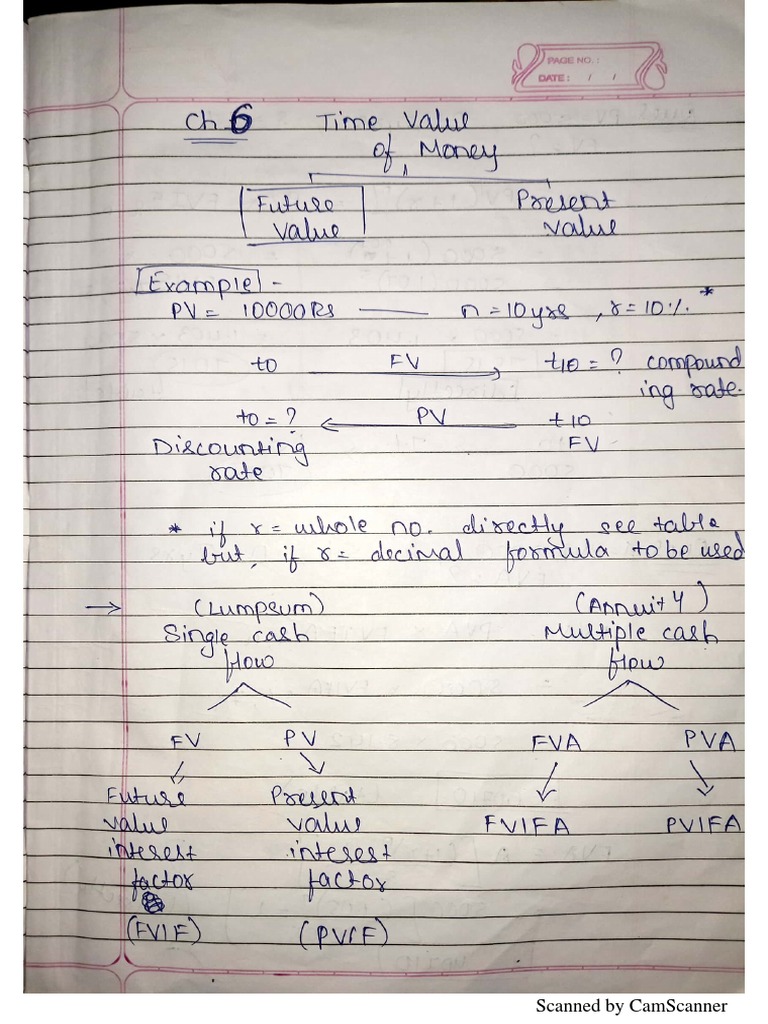 PAGE NO.:
DATE: / /
Ch 6 Time Value
of Money
Future Present
Value Value
Example -
PV = 10000Rs — n = 10yrs, r = 10%. *
to FV → t10 = ? compound
ing rate.
to = ? ← PV t10
Discounting FV
rate
* if r = whole no. directly see table
but, if r = decimal formula to be used
→ (Lumpsum) (Annuity)
Single cash Multiple cash
flow flow
FV PV FVA PVA
Future Present
value value FVIFA PVIFA
interest interest
factor factor
(FVIF) (PVIF)
Scanned by CamScanner